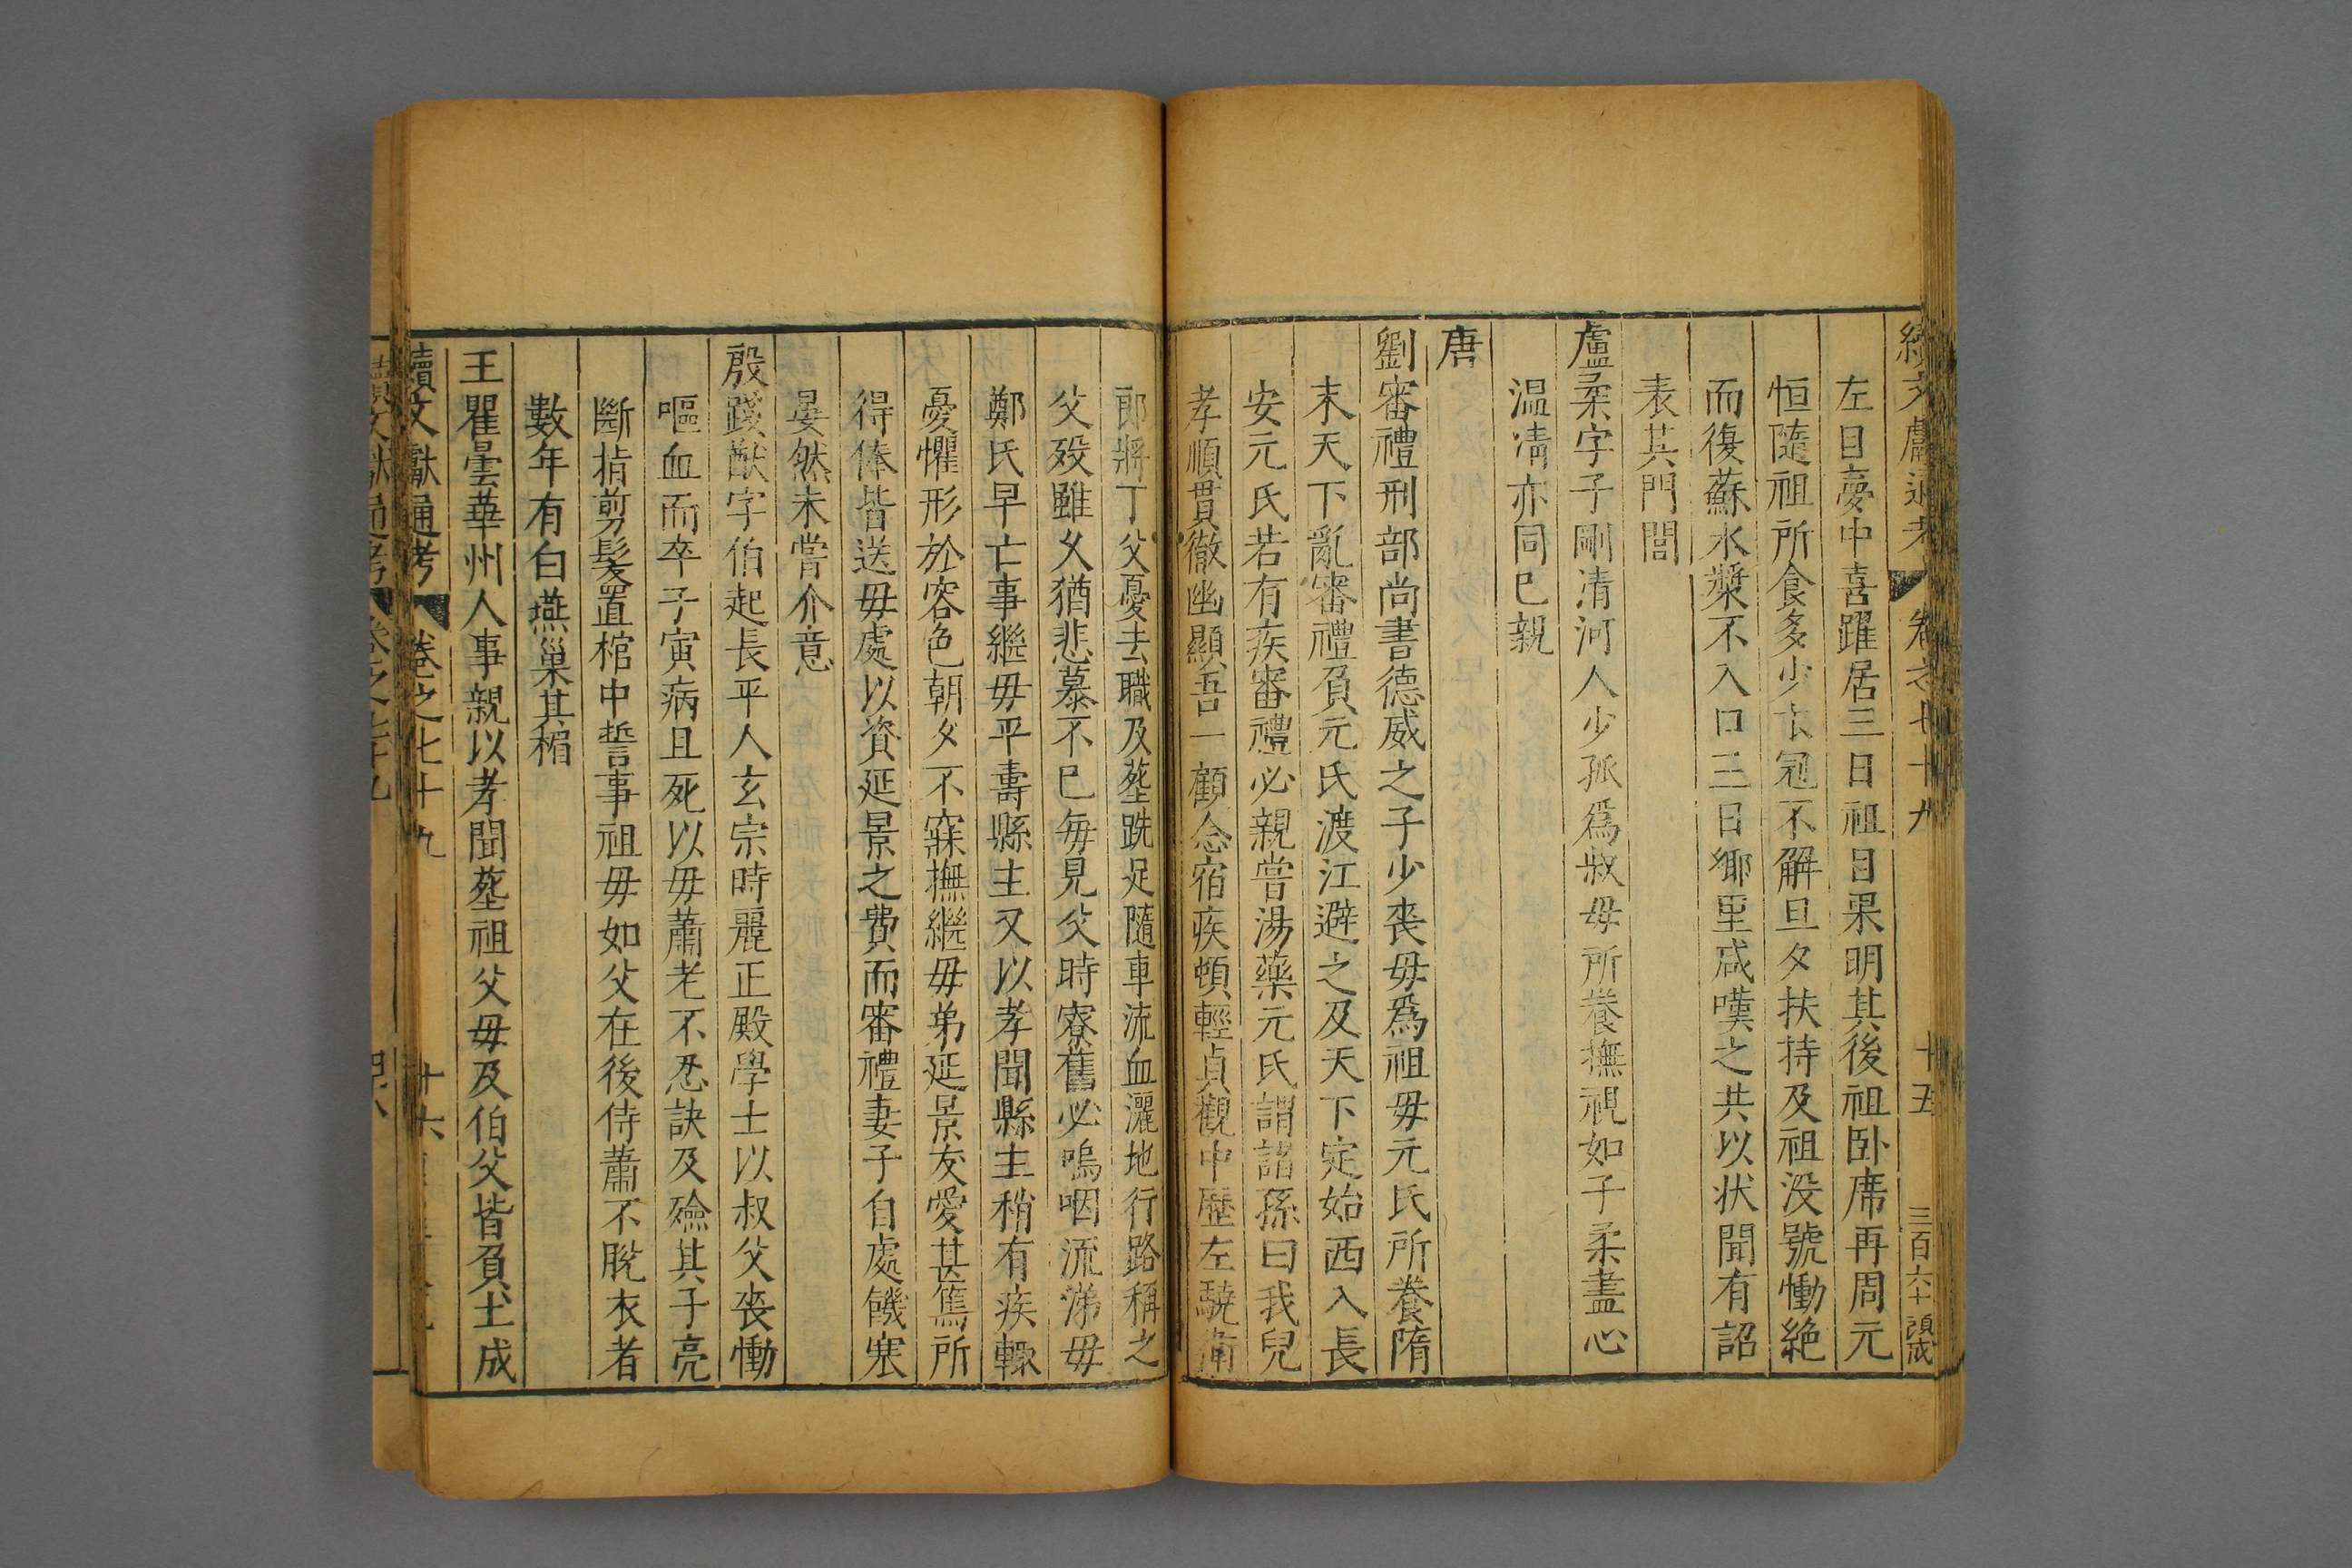 續文獻通考 卷之七十九 十五 三百六十
左目夢中喜躍居三日祖目果明其後祖卧席再周元
恒隨祖所食多少衣冠不解旦夕扶持及祖没號慟絶
而復蘇水漿不入口三日鄉里咸嘆之共以状聞有詔
表其門閭
盧柔字子剛清河人少孤爲叔母所養撫視如子柔盡心
温凊亦同已親
唐
劉審禮刑部尚書德威之子少丧毋爲祖毋元氏所養隋
末天下亂審禮負元氏渡江避之及天下定始西入長
安元氏若有疾審禮必親嘗湯藥元氏謂諸孫曰我兒
孝順貫徹幽顯吾一顧念宿疾頓輕貞觀中歷左驍衛
郎將丁父憂去職及塟跣足隨車流血灑地行路稱之
父殁雖久猶悲慕不已每見父時寮舊必嗚咽流涕毋
鄭氏早亡事繼毋平壽縣主又以孝聞縣主稍有疾輙
憂懼形於容色朝夕不寐撫繼毋弟延景友愛甚篤所
得俸皆送毋處以資延景之費而審禮妻子自處饑寒
晏然未嘗介意
殷踐猷字伯起長平人玄宗時麗正殿學士以叔父丧慟
嘔血而卒子寅病且死以毋蕭老不忍訣及殮其子亮
斷指剪髮置棺中誓事祖毋如父在後侍蕭不脫衣者
數年有白燕巢其楣
王瞿曇華州人事親以孝聞塟祖父毋及伯父皆負土成
續文獻通考 卷之七十九 十六
續文獻通考 卷之七十九